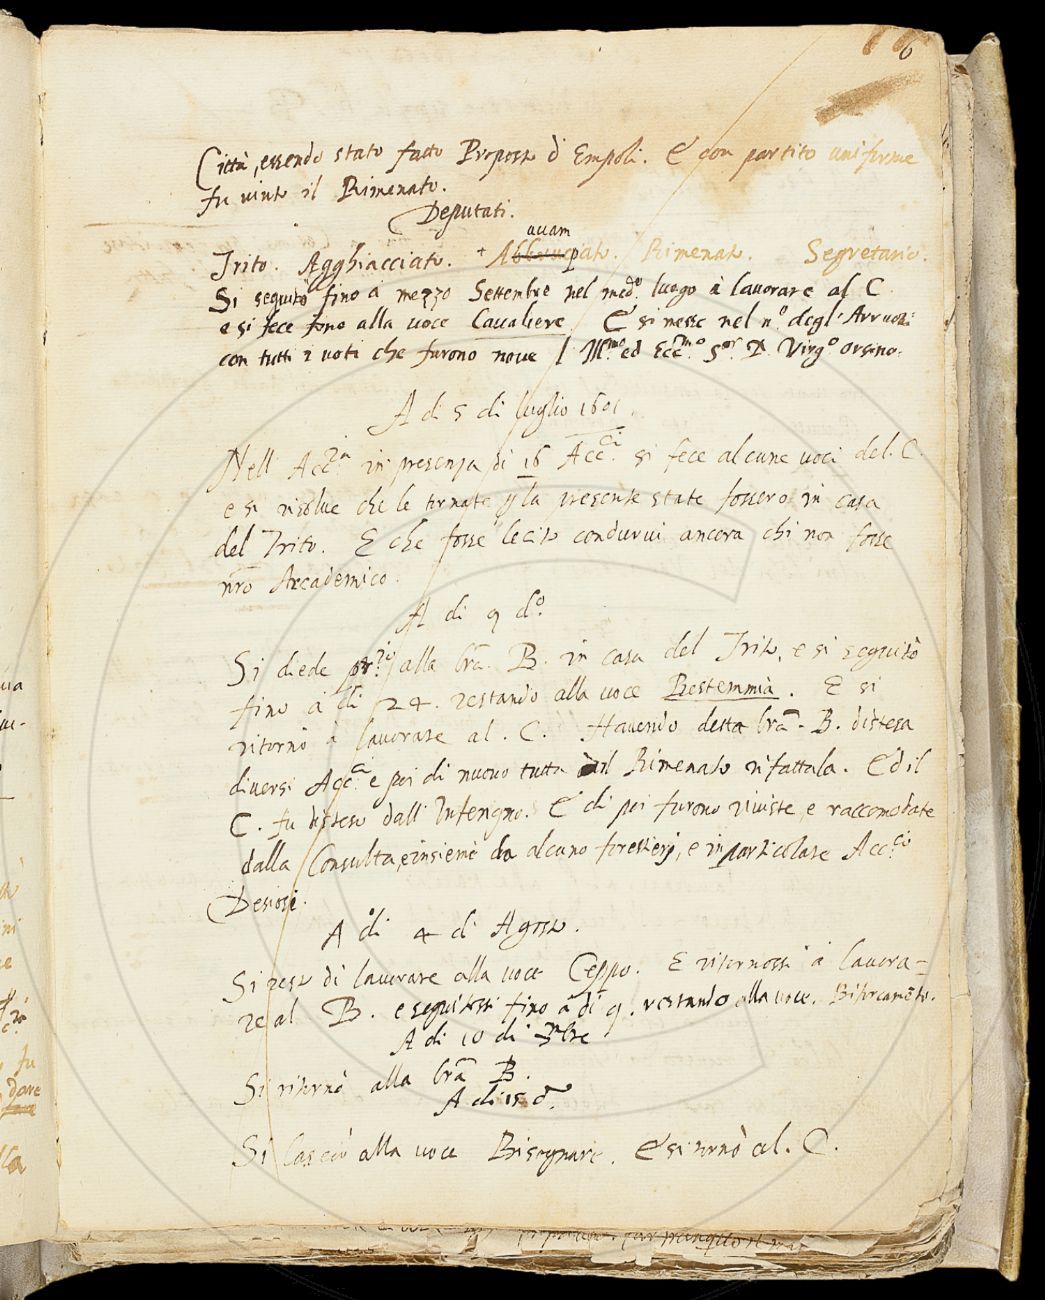 6
Città, essendo stato fatto Proposto d Empoli. E con partito uniforme
fu vinto il Rimenato.
Deputati.
auam
Trito. Agghiacciato. + Rimenato. Segretario.
Si seguitò fino a mezzo Settembre nel med.o luogo à lauorare al C
e si fece fino alla uoce Caualiere. E si messe nel n.o degl'
con tutti i uoti che furono noue l Ill.mo ed Ecc.mo S.or D. Virg.o Orsino.
A di 5 di luglio 1601.
Nell Acc.a in presenza di 16 Acc.ci si fece alcune uoci del. C.
e si risolue che le tornate p la presente state fossero in casa
del Trito. E che fosse lecito condurui ancora chi non fosse
nro Accademico.
A di 9 d.o
Si diede pr.o alla bra B. in casa del Trito, e si seguitò
fino à di 24. restando alla uoce Bestemmia. E si
ritornò à lauorare al. C. Hauendo detta bra. B. distesa
diuersi Acc.ci e poi di nuouo tutta il Rimenato rifattala. Ed il
C. fu disteso dall' Inferigno. E di poi furono riuiste, e raccomodate
dalla Consulta, e insieme da alcuno forestieri, e in particolare Acc.co
Desioso.
A di 4 di Agosto.
Si restò di lauorare alla uoce Ceppo. E ritornossi à lauora=
re al B. e seguitossi fino à di 9. restando alla uoce. Biforcamēto.
A di 10 di 7bre
Si ritornò alla bra B.
A di 15 d.o
Si lasciò alla uoce Bisognare. E si tornò al. C.